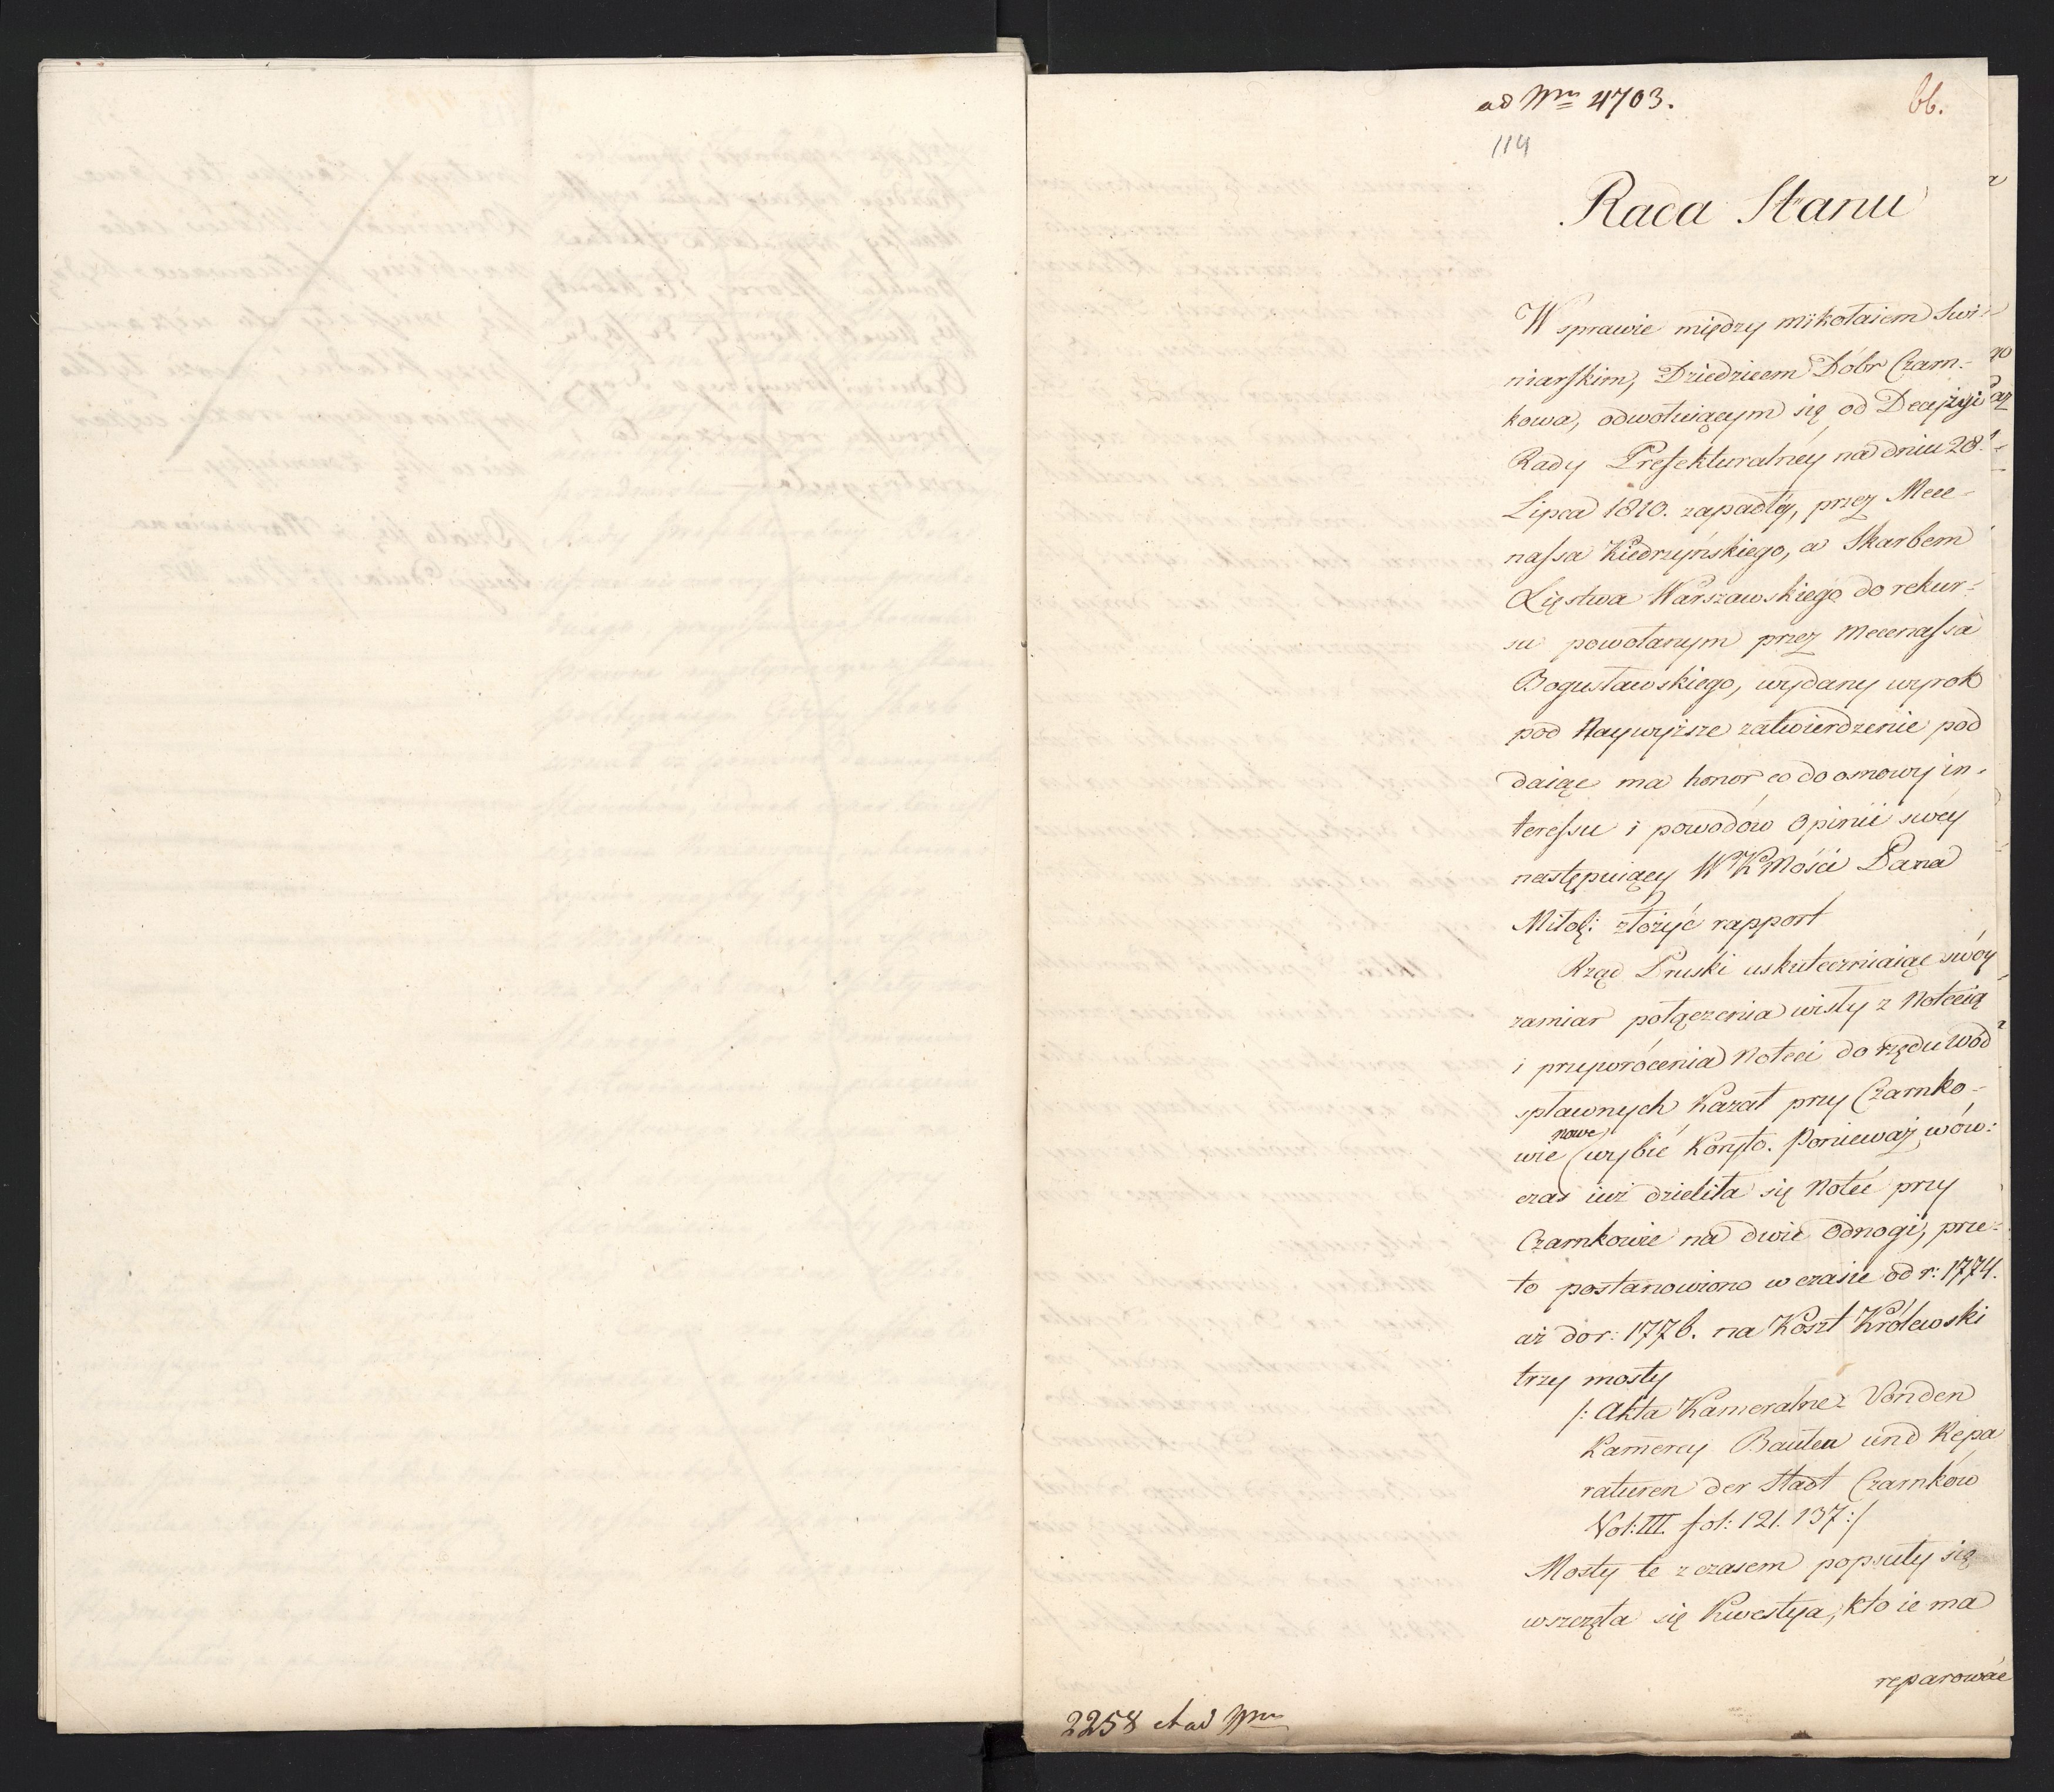 ad Nrm 4703.
66.
114
Rada Stanu
W sprawie między Mikołaiem Swi-
niarskim, Dziedzicem Dóbr Czarn-
kowa, odwołuiącym się od Decyzyi
Rady Prefekturalnéy na dniu 28.
Lipca 1810. zapadłéy, przez Mece-
nassa Kiedrzyńskiego, a Skarbem
Xięstwa Warszawskiego do rekur-
su powołanym przez Mecenassa
Bogusławskiego, wydany wyrok
pod Naywyższe zatwierdzenie pod
daiąc ma honor co do osnowy in-
teressu i powodów Opinii swéy
następuiący WKMości Pana
Miłoś: złożyć rapport
Rząd Pruski uskuteczniaiąc swóy
zamiar połączenia Wisły z Notecią
i przywrócenia Noteci do rzędu wód
spławnych kazał przy Czarnko-
nowe
wie wybić Koryto. Ponieważ wów-
czas iuż dzieliła się Noteć przy
Czarnkowie na dwie Odnogi, prze-
to postanowiono w czasie od r: 1774.
aż do r: 1776. na Koszt Królewski
trzy mosty
/: Akta Kameralne: Von den
Kam̄erey Bauten und Repa
raturen der Stadt Czarnków
Vol: III. fol: 121. 137 :/
Mosty te z czasem popsuły się
wszczęła się kwestya, kto ie ma
reparować
2258 et ad Nrm